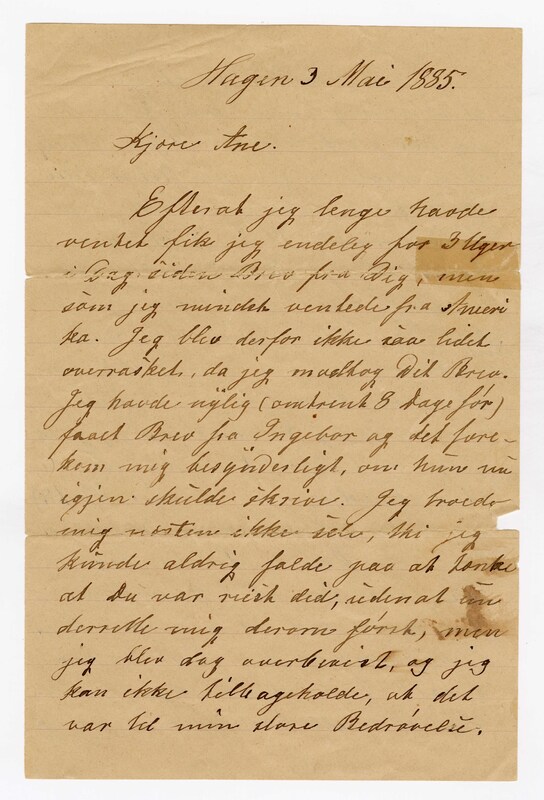 Hagen 3 Mai 1885.
Kjære Ane.
Efterat jeg lenge havde
ventet fik jeg endeleg for 3 Uger
i Dag siden Brev fra Dig, men
som jeg mindst ventede fra Ameri
ka. Jeg blev derfor ikke saa lidet
overrasket, da jeg modtog Dit Brev.
Jeg havde nylig (omtrent 8 Dage før)
faaet Brev fra Ingebor og det fore-
kom mig besynderligt, om hun nu
igjen skulde skrive. Jeg troede
mig næsten ikke selv, thi jeg
kunde aldrig falde paa at tænke
at Du var reist did, uden at un
derrette mig derom først, men
jeg blev dog overbevist, og jeg
kan ikke tilbageholde, at det
var til min store Bedrøvelse.